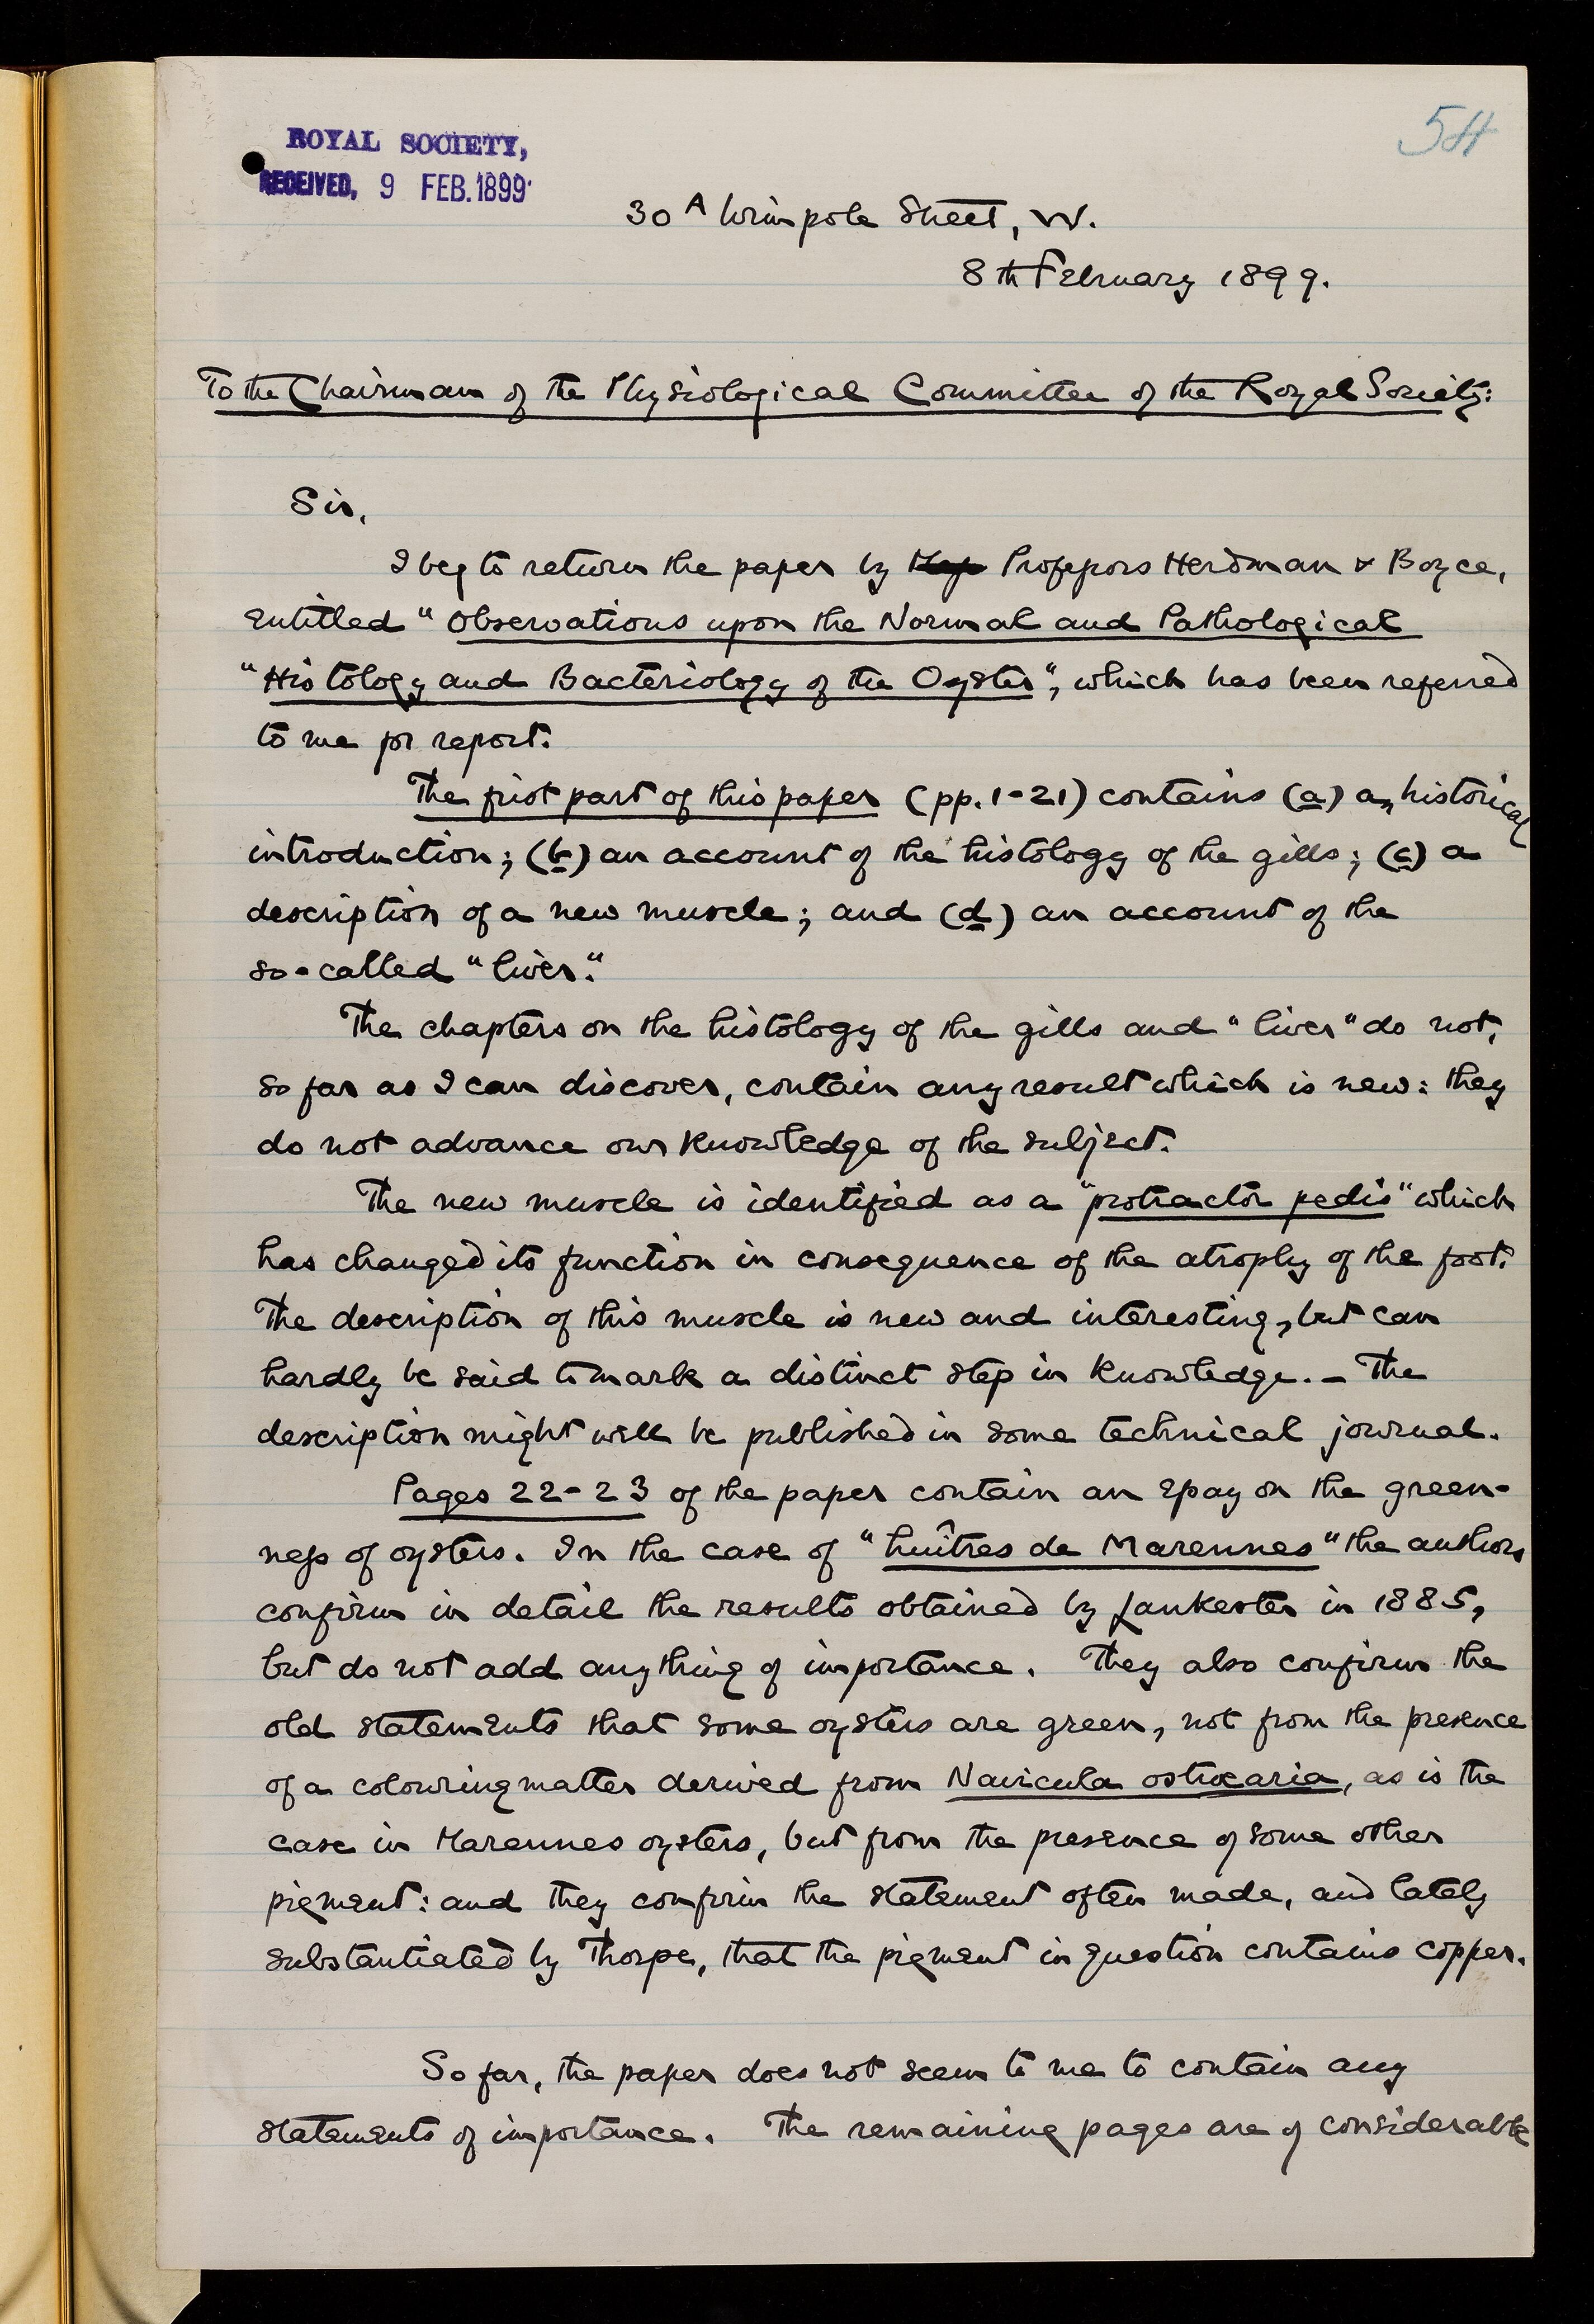 54
ROYAL SOCIETY,
RECEIVED, 9 FEB. 1899
30 A Wimpole Street, W.
8th February 1899.
To the Chairman of the Physiological Committee of the Royal Society:
Sir,
I beg to return the paper by Professors Herdman & Boyce,
entitled "Observations upon the Normal and Pathological
"Histology and Bacteriology of the Oyster", which has been referred
to me for report.
The first part of this paper (pp. 1-21) contains (a) an historical
introduction; (b) an account of the histology of the gills; (c) a
description of a new muscle; and (d) an account of the
so-called "liver."
The chapters on the histology of the gills and "liver" do not,
so far as I can discover, contain any result which is new: they
do not advance our knowledge of the subject.
The new muscle is identified as a "protractor pedis" which
has changed its function in consequence of the atrophy of the foot.
The description of this muscle is new and interesting, but can
hardly be said to mark a distinct step in knowledge. - The
description might well be published in some technical journal.
Pages 22-23 of the paper contain an essay on the green-
ness of oysters. In the case of "huîtres de Marennes" the authors
confirm in detail the results obtained by Lankester in 1885,
but do not add anything of importance. They also confirm the
old statements that some oysters are green, not from the presence
of a colouring matter derived from Navicula ostrearia, as is the
case in Marennes oysters, but from the presence of some other
pigment: and they confirm the statement often made, and lately
substantiated by Thorpe, that the pigment in question contains copper.
So far, the paper does not seem to me to contain any
statements of importance. The remaining pages are of considerable